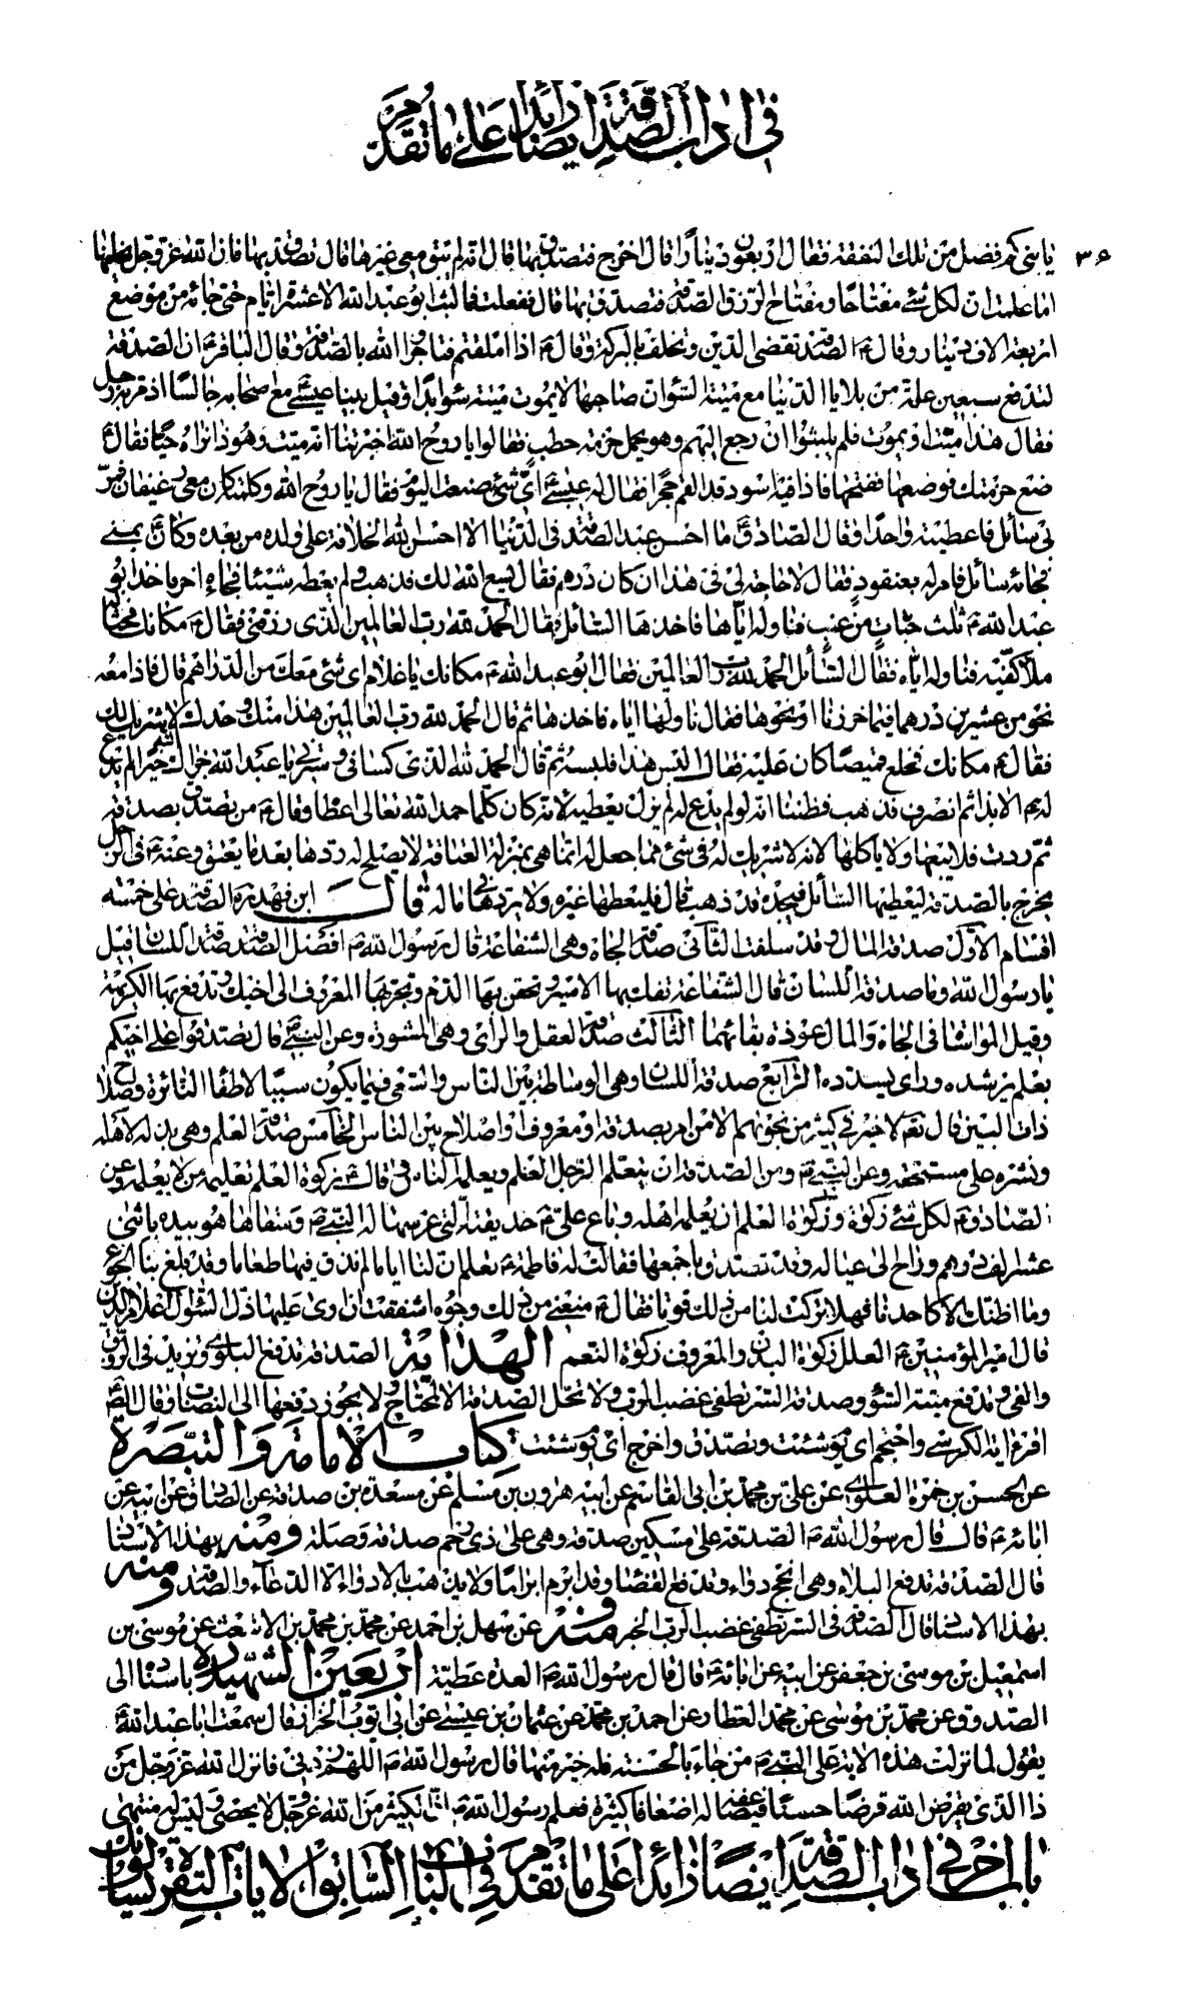 في اداب الصدقة ايضا زائدا على ما تقدم
۳۶
يا بني كم فضل من تلك النفقة فقال اربعون دينارا قال اخرج فتصدق بها قال انه لم يبق معي غيرها قال تصدق بها فان الله عز وجل يخلفها
اما علمت ان لكل شئ مفتاحا ومفتاح الرزق الصدقة فتصدق بها قال ففعلت فما لبث ابو عبد الله الا عشرة ايام حتى جائه من موضع
اربعة الاف دينار وقال ع الصدقة تقضي الدين وتخلف بالبركة وقال ع اذا املقتم فتاجروا الله بالصدقة وقال الباقر ع ان الصدقة
لتدفع سبعين علة من بلايا الدنيا مع ميتة السوء ان صاحبها لا يموت ميتة سوء ابدا وقيل بينا عيسى مع اصحابه جالسا اذ مر به رجل
فقال هذا ميت او يموت فلم يلبثوا ان رجع اليهم وهو يحمل حزمة حطب فقالوا يا روح الله اخبرتنا انه ميت وهو ذا نراه حيا فقال ع
ضع حزمتك فوضعها ففتحها فاذا فيه اسود قد القم حجرا فقال له عيسى اي شئ صنعت اليوم فقال يا روح الله وكلمته كان معي رغيفان فمر
بي سائل فاعطيته واحدا وقال الصادق ع ما احسن عبد الصدقة في الدنيا الا احسن الله الخلافة على ولده من بعده وكان بمنى
فجائه سائل فامر له بعنقود فقال لا حاجة لي في هذا ان كان درهم فقال يسع الله لك فذهب ولم يعطه شيئا فجاء اخر فاخذ ابو
عبد الله ع ثلث حبات من عنب فناوله اياها فاخذها السائل فقال الحمد لله رب العالمين الذي رزقني فقال ع مكانك فحثا له
ملأ كفيه فناوله اياه فقال السائل الحمد لله رب العالمين فقال ابو عبد الله ع مكانك يا غلام اي شئ معك من الدراهم قال فاذا معه
نحو من عشرين درهما فيما حرزنا او نحوها فقال ناولها اياه فاخذها ثم قال الحمد لله رب العالمين هذا منك وحدك لا شريك لك
فقال ع مكانك فخلع قميصا كان عليه فقال البس هذا فلبسه ثم قال الحمد لله الذي كساني وسترني يا عبد الله جزاك الله خيرا لم يدع
له ع الا بذا ثم انصرف فذهب فظننا انه لو لم يدع له لم يزل يعطيه لانه كان كلما حمد الله تعالى اعطاه وقال ع من تصدق بصدقة
ثم ردت فلا يبيعها ولا ياكلها لانه لا شريك له في شئ مما جعل له انما هي بمنزلة العتاقة لا يصلح له ردها بعد ما يعتق وعنه ع في الرجل
يخرج بالصدقة ليعطيها السائل فيجده قد ذهب قال فليعطها غيره ولا يردها في ماله قال ابن فهد ره الصدقة على خمسة
اقسام الاول صدقة المال وقد سلفت الثاني صدقة الجاه وهي الشفاعة قال رسول الله ص افضل الصدقة صدقة اللسان قيل
يا رسول الله وما صدقة اللسان قال الشفاعة تفك بها الاسير وتحقن بها الدم وتجر بها المعروف الى اخيك وتدفع بها الكريهة
وقيل المواساة في الجاه والمال عوذة بقائهما الثالث صدقة العقل والراي وهي المشورة وعن النبي ص قال تصدقوا على اخيكم
بعلم يرشده وراي يسدده الرابع صدقة اللسان وهي الوساطة بين الناس والسعي فيما يكون سببا لاطفاء النائرة واصلاح
ذات البين قال تعالى لا خير في كثير من نجويهم الا من امر بصدقة او معروف او اصلاح بين الناس الخامس صدقة العلم وهي بذله لاهله
ونشره على مستحقه وعن النبي ص ومن الصدقة ان يتعلم الرجل العلم ويعلمه الناس وقال ع زكوة العلم تعليمه من لا يعلمه وعن
الصادق ع لكل شئ زكوة وزكوة العلم ان يعلمه اهله وباع علي ع حديقته التي غرسها له النبي ص وسقاها هو بيده باثني
عشر الف درهم وراح الى عياله وقد تصدق باجمعها فقالت له فاطمة ع تعلم ان لنا اياما لم نذق فيها طعاما وقد بلغ بنا الجوع
وما اظنك الا كاحدنا فهلا تركت لنا من ذلك قوتا فقال ع منعني من ذلك وجوه اشفقت ان ارى عليها ذل السؤال اعلام الدين
قال امير المؤمنين ع العلل زكوة البدن والمعروف زكوة النعم الهداية الصدقة تدفع البلوى وتزيد في الرزق
والغنى وتدفع ميتة السوء وصدقة السر تطفي غضب الرب ولا تحل الصدقة الا لمحتاج ولا يجوز دفعها الى النصاب وقال الص
اقرء اية الكرسي واحتجم اي يوم شئت وتصدق واخرج اي يوم شئت كتاب الامامة والتبصرة
عن الحسن بن حمزة العلوي عن علي بن محمد بن ابي القاسم عن ابيه هرون بن مسلم عن مسعدة بن صدقة عن الصادق عن ابيه عن
ابائه ع قال قال رسول الله ص الصدقة على مسكين صدقة وهي على ذي رحم صدقة وصلة ومنه بهذا الاسناد
قال الصدقة تدفع البلاء وهي انجح دواء وتدفع القضاء وقد ابرم ابراما ولا يذهب بالادواء الا الدعاء والصدقة ومنه
بهذا الاسناد قال الصدقة في السر تطفي غضب الرب الخبر ومنه عن سهل بن احمد عن محمد بن محمد بن الاشعث عن موسى بن
اسمعيل بن موسى بن جعفر عن ابيه عن ابائه ع قال قال رسول الله ص العدة عطية اربعين الشهيد ره باسناده الى
الصدوق عن محمد بن موسى عن محمد العطار عن احمد بن محمد عن عثمان بن عيسى عن ابي ايوب الخراز قال سمعت ابا عبد الله ع
يقول لما نزلت هذه الاية على النبي ص من جاء بالحسنة فله خير منها قال رسول الله ص اللهم زدني فانزل الله عز وجل من
ذا الذي يقرض الله قرضا حسنا فيضاعفه له اضعافا كثيرة فعلم رسول الله ص ان الكثير من الله عز وجل لا يحصى وليس له منتهى
باب اخر في اداب الصدقة ايضا زائدا على ما تقدم في الباب السابق الايات البقرة يسئلونك